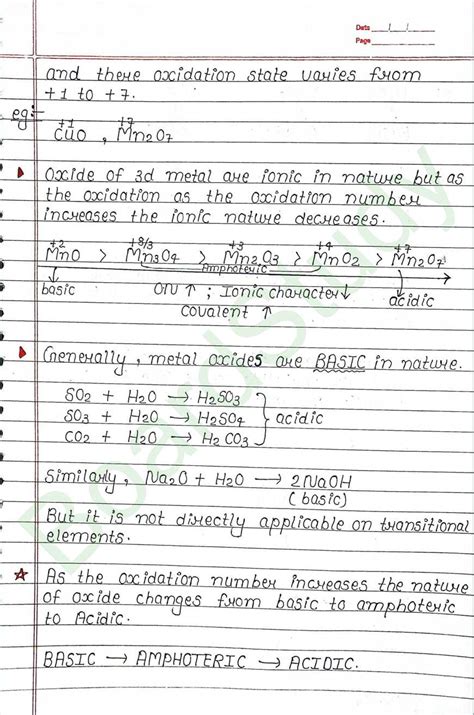 Date / /
Page
and there oxidation state varies from
+1 to +7.
eg:- +1 +7
CuO , Mn2O7
Oxide of 3d metal are ionic in nature but as
the oxidation as the oxidation number
increases the ionic nature decreases.
+2 +8/3 +3 +4 +7
MnO > Mn3O4 > Mn2O3 > MnO2 > Mn2O7
Amphoteric
basic ON ↑ ; Ionic character ↓ acidic
Covalent ↑
Generally, metal oxides are BASIC in nature.
SO2 + H2O → H2SO3
SO3 + H2O → H2SO4 } acidic
CO2 + H2O → H2CO3
Similarly, Na2O + H2O → 2NaOH
(basic)
But it is not directly applicable on transitional
elements.
☆ As the oxidation number increases the nature
of oxide changes from basic to amphoteric
to Acidic.
BASIC → AMPHOTERIC → ACIDIC.
BoardStudy